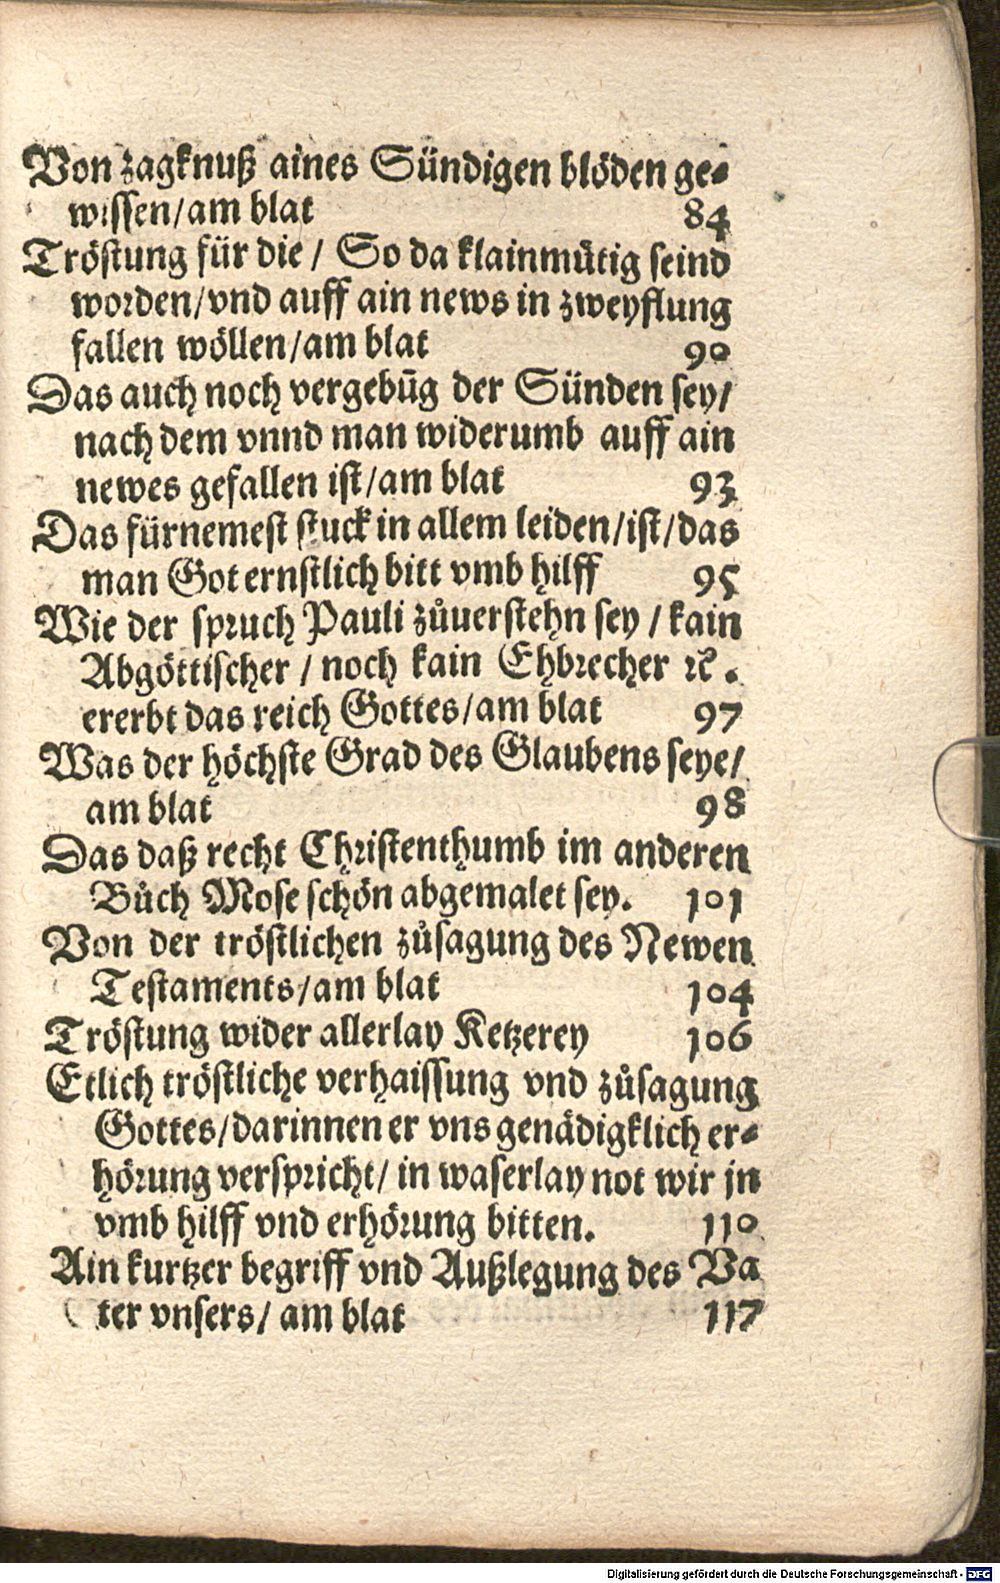 Von zagknuß aines Sündigen blöden ge-
wissen/am blat 84
Tröstung für die / So da klainmütig seind
worden/vnd auff ain news in zweyflung
fallen wöllen/am blat 90
Das auch noch vergebūg der Sünden sey/
nach dem vnnd man widerumb auff ain
newes gefallen ist/am blat 93
Das fürnemest stuck in allem leiden/ist/das
man Got ernstlich bitt vmb hilff 95
Wie der spruch Pauli zůuerstehn sey / kain
Abgöttischer / noch kain Ehbrecher ꝛc.
ererbt das reich Gottes/am blat 97
Was der höchste Grad des Glaubens seye/
am blat 98
Das daß recht Christenthumb im anderen
Bůch Mose schön abgemalet sey. 101
Von der tröstlichen zůsagung des Newen
Testaments/am blat 104
Tröstung wider allerlay Ketzerey 106
Etlich tröstliche verhaissung vnd zůsagung
Gottes/darinnen er vns genädigklich er-
hörung verspricht/ in waserlay not wir jn
vmb hilff vnd erhörung bitten. 110
Ain kurtzer begriff vnd Außlegung des Va
ter vnsers/ am blat 117
Digitalisierung gefördert durch die Deutsche Forschungsgemeinschaft - DFG